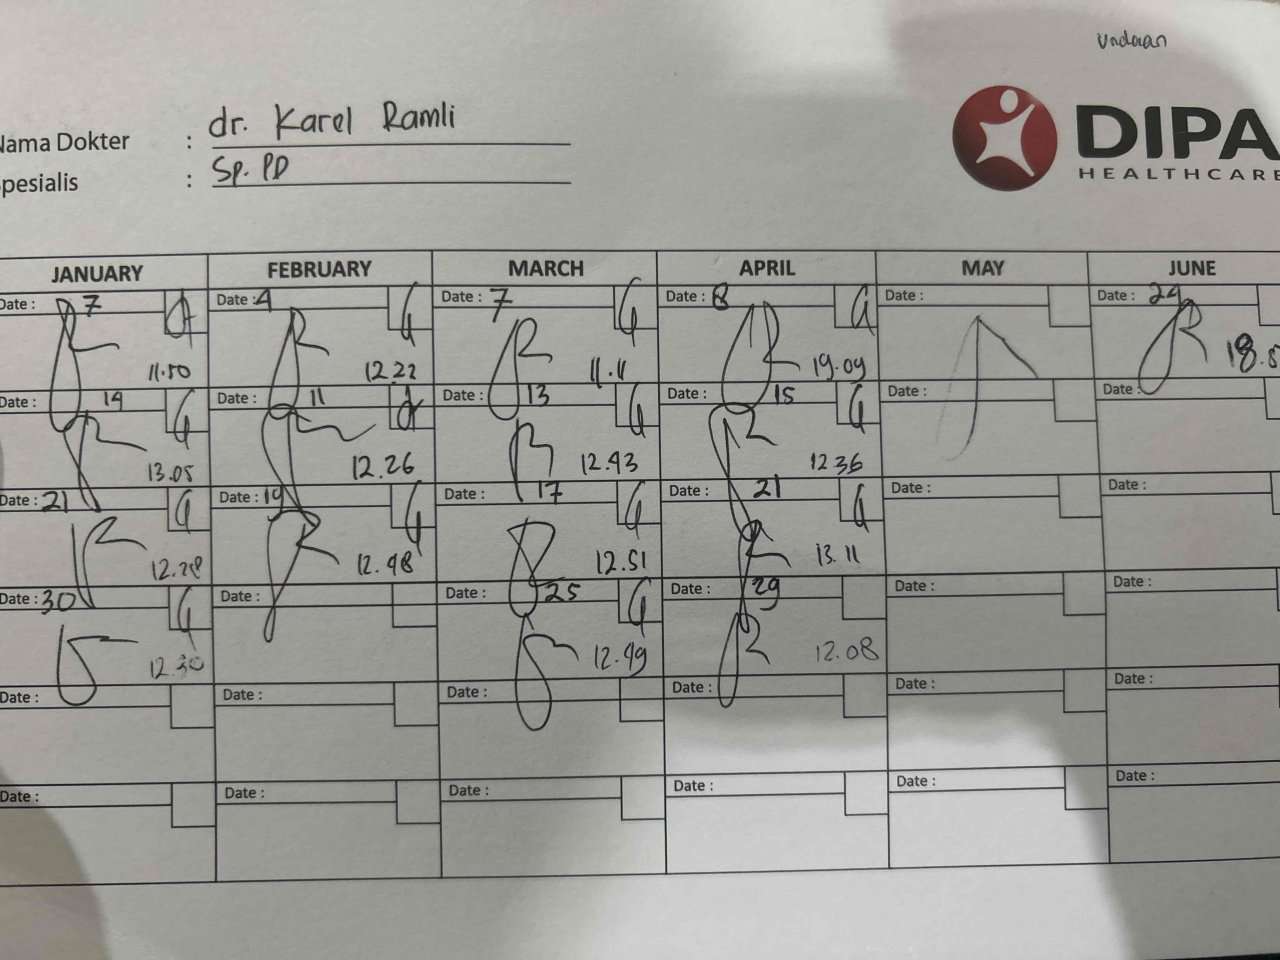 Undaan
Nama Dokter : dr. Karel Ramli
Spesialis : Sp. PD
DIPA
HEALTHCARE
JANUARY FEBRUARY MARCH APRIL MAY JUNE
Date : 7 Date : 4 Date : 7 Date : 8 Date : Date : 24
11.50 12.22 11.11 19.09 18.5
Date : 14 Date : 11 Date : 13 Date : 15 Date : Date :
13.05 12.26 12.43 12.36
Date : 21 Date : 19 Date : 17 Date : 21 Date : Date :
12.28 12.48 12.51 13.11
Date : 30 Date : Date : 25 Date : 29 Date : Date :
12.30 12.49 12.08
Date : Date : Date : Date : Date : Date :
Date : Date : Date : Date : Date : Date :